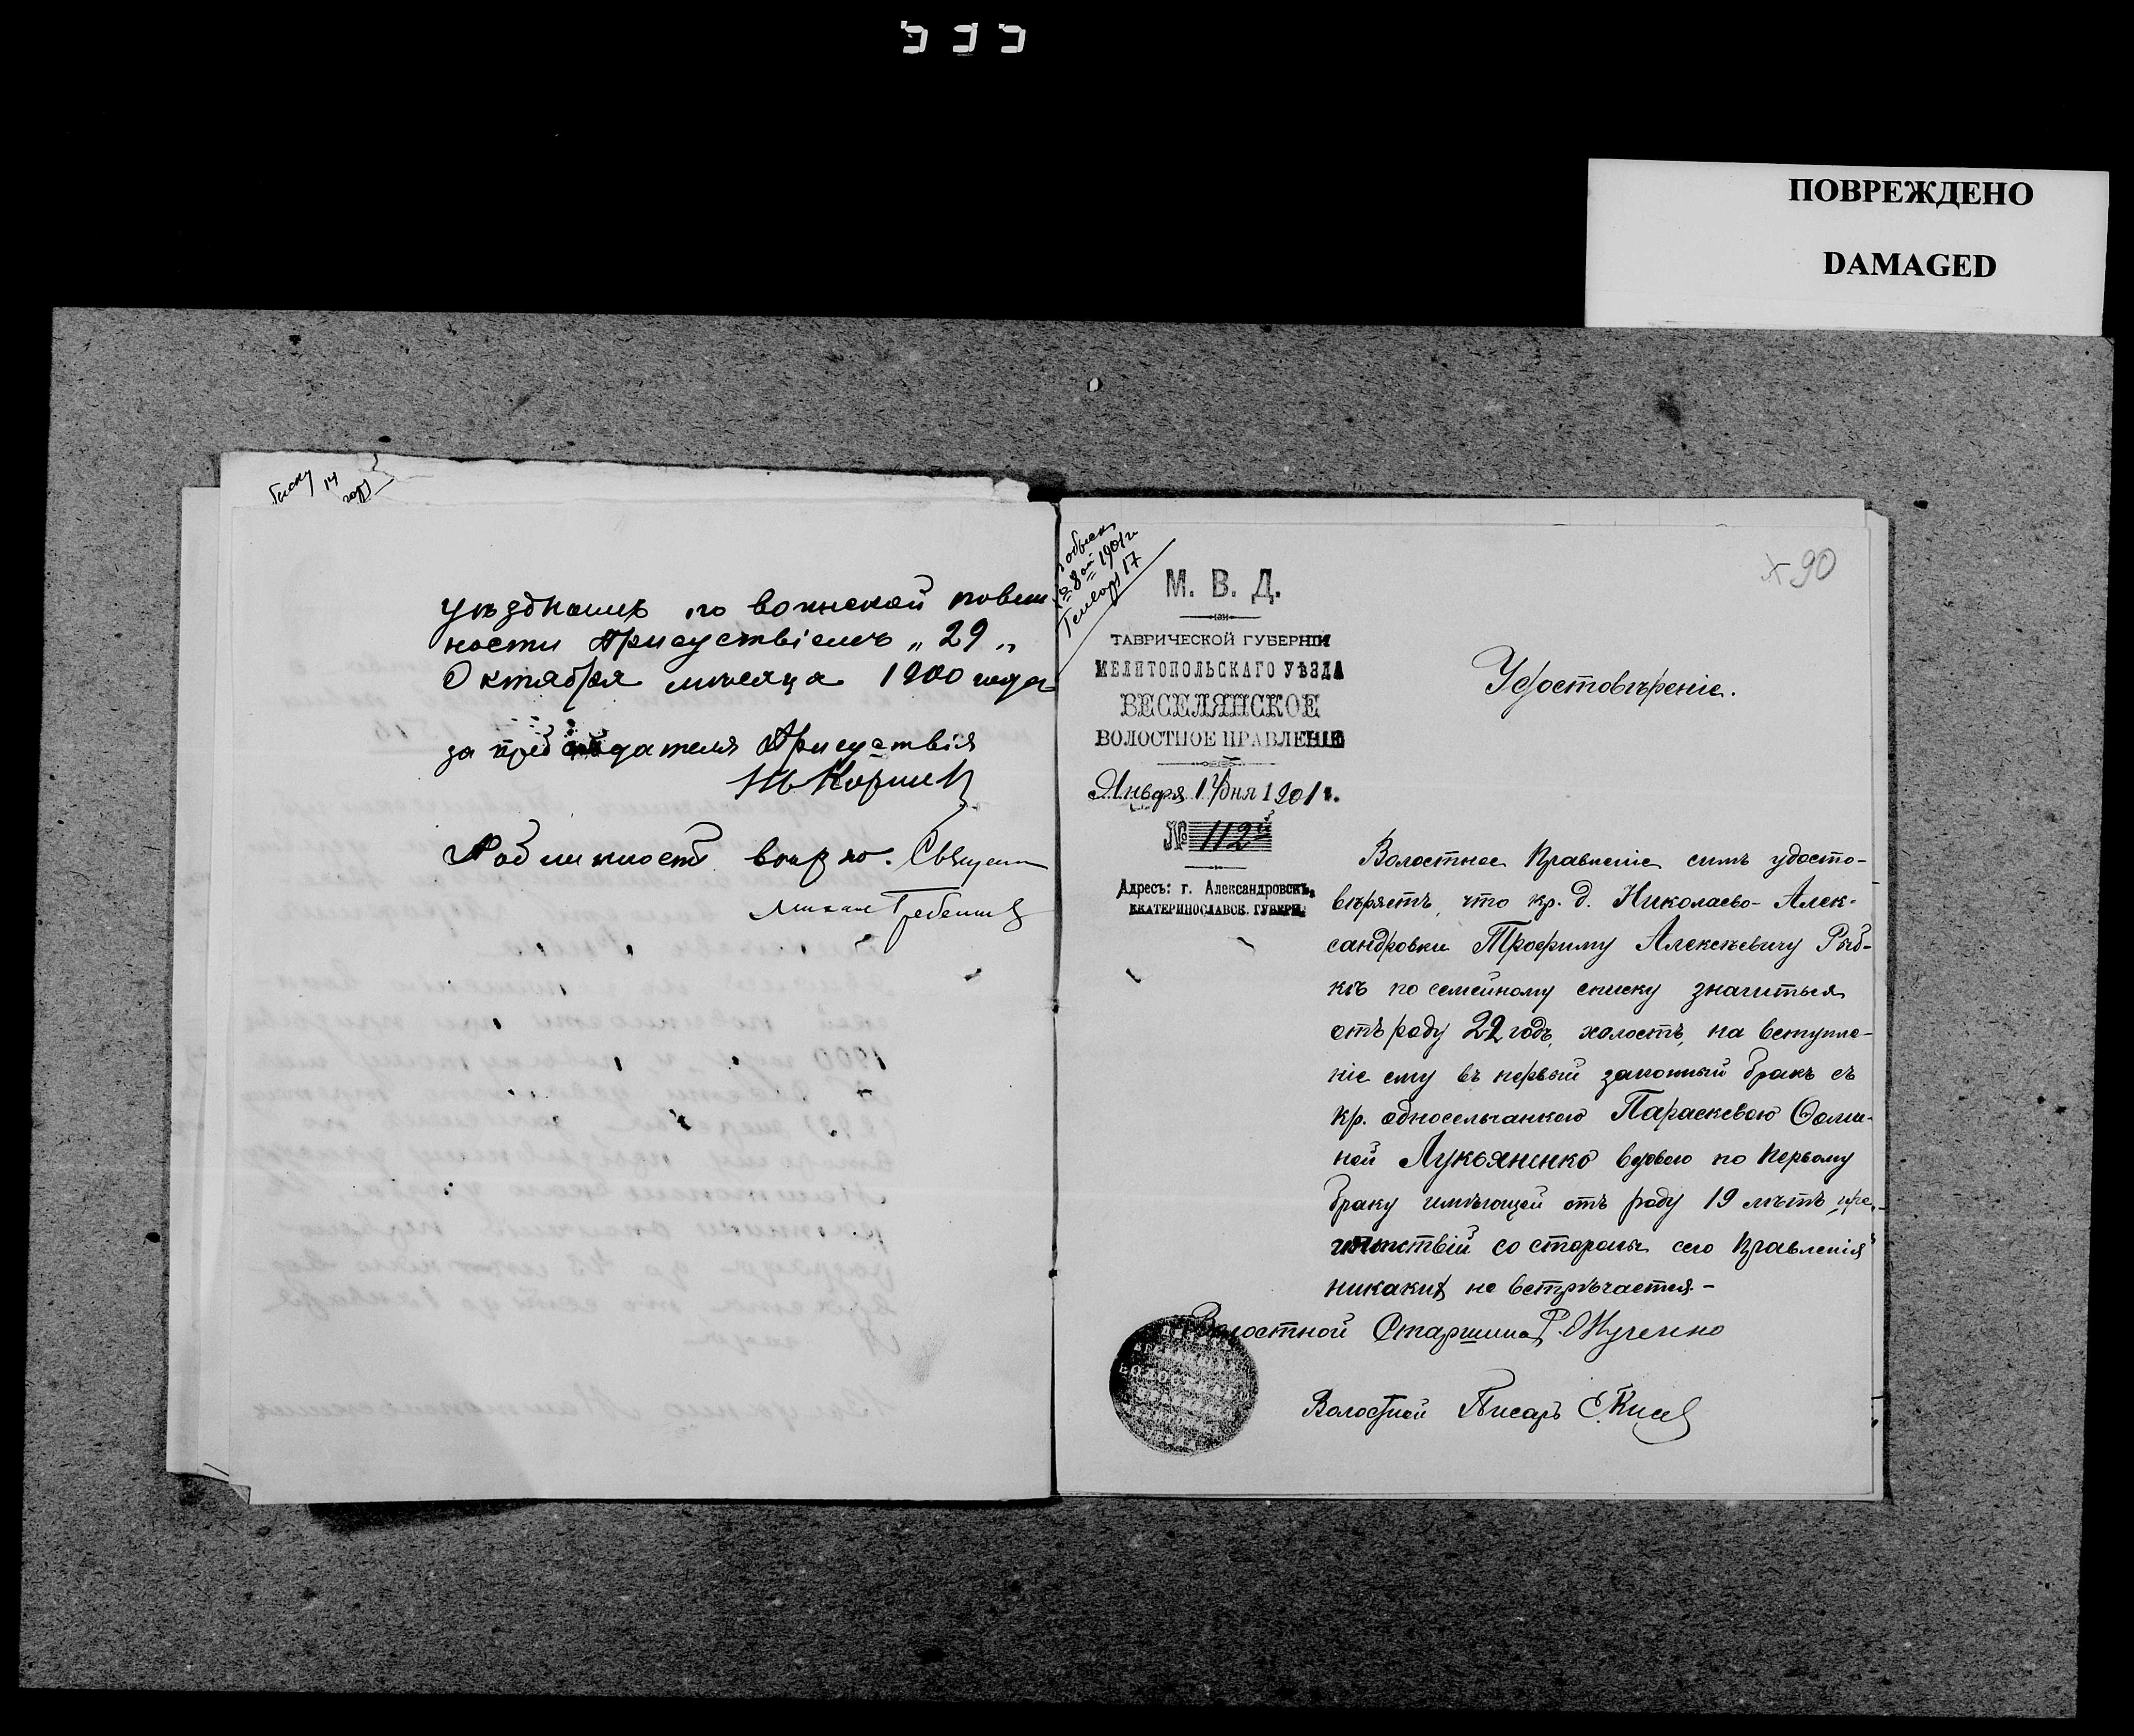 ПОВРЕЖДЕНО
DAMAGED
уѣзднымъ по воинской повин
ности Присутствіемъ „29„
Октября мѣсяца 1900 года
за предсѣдателя Присутствія
Подлинность вѣрю. Священ
90
М. В. Д.
ТАВРИЧЕСКОЙ ГУБЕРНІИ
МЕЛИТОПОЛЬСКАГО УѢЗДА
ВЕСЕЛЯНСКОЕ
ВОЛОСТНОЕ ПРАВЛЕНІЕ
Января дня 1901 г.
№ 112й
Адресъ: г. Александровскъ,
ЕКАТЕРИНОСЛАВСК. ГУБЕРН.
Удостовѣреніе.
Волостное Правленіе симъ удосто-
вѣряетъ, что кр. д. Николаево-Алек-
сандровки Трофиму Алексѣевичу Рыб-
кѣ по семейному списку значиться
отъ роду 22 годъ, холостъ, на вступле-
ніе ему въ первый законный бракъ съ
кр. односельчанкою Параскевою Ѳоми-
ной Лукьяненко вдовою по первому
браку имѣющей отъ роду 19 лѣтъ, пре-
пятствій со стороны сего Правленія
никакихъ не встрѣчается.-
Волостной Старшина
Волостной Писарь